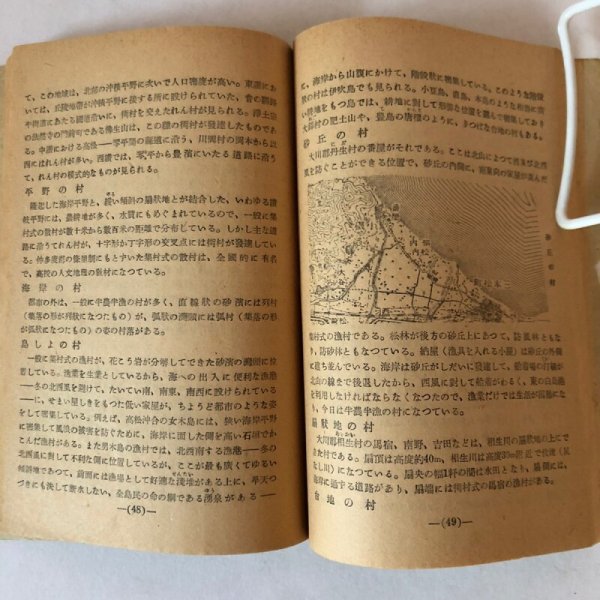 て、この地域は、北部の沖積平野に次いで人口密度が高い。東讃にお
いては、丘陵地帯が沖積平野に接する所に設けられていた、昔の
に沿うて、街村を交えたれん村が見られる。浄土宗
の法然寺の門前町である仏生山は、この種の街村が発達したものであ
る。中讃における高松―琴平間の街道に沿う、川岡村の岡本から以
西にはれん村が多い。西讃では、琴平から豊浜にいたる道路に沿う
て、れん村の模式的なものが見られる。
平野の村
隆起した海岸平野と、緩い傾斜の扇状地とが結合した、いわゆる讃
岐平野には、最耕地が多く、水質にもめぐまれているので、一般に集
村式の散村が数十米から数百米の距離で分布している。しかし主な道
路に沿うてれん村が、十字形か丁字形の交叉点には街村が発達してい
る。仲多度郡の條里制にもとずいた集村式の散村は、全国的に有名
で、高校の人文地理の教材になつている。
海岸の村
都市の外は、一般に半農半漁の村が多く、直線状の砂浜には列村
(集落の形が列状になつたもの)が、弧状の湾頭には弧村(集落の形
が弧状になつたもの)の姿の村落がある。
島しよの村
一般に集村式の漁村が、花こう岩が分解してできた砂浜の湾頭に位
置している。漁業を生業としているから、海への出入に便利な漁港
―冬の北西風を避けて、たいてい南、南東、南西に設けられている
―に、せまい屋しきをもつた低い家屋が、ちようど都市のような姿
をして密集している。例えば、高松沖合の女木島には、狭い海岸平野
に密集して風浪の被害を防ぐために、海岸に面した側を高い石垣でか
こんだ漁村がある。また男木島の漁村では、北西南する漁港―冬の
北西風に対して不利な側に位置しているが、ここが最も広くてゆるい
傾斜地であつて、前面には漁場として好適な浅堆がある上に、平天つ
づきにも決して断水しない、全島民の命の綱である湧泉がある―
―(48)―
に、海岸から山腹にかけて、階段状に密集している。このような階段
状の村は伊吹島でも見られる。小豆島、直島、本島のような相当に広
い耕地をもつ島では、耕地に対して形勝な位置を選んで農業している
大部村の肥土山や、豊島の唐櫃のように、まつぽな台地の村もある。
砂丘の村
大川郡丹生村の番屋がそれである。ここは北山によつて西風及北西
風を防ぐことができる位置で、砂丘の内側に、南東向の家屋が並んだ
砂丘の村
集村式の漁村である。松林が後方の砂丘上にあつて、防風林ともな
り、防砂林ともなつている。納屋(漁具を入れる小屋)は砂丘の外側
に立ち並んでいる。海岸は砂丘がしだいに発達して、船着場の汀線が
北山の線まで後退したから、西風に対して船着がわるく、東の白鳥港
を利用しなければならなくなつたので、漁業だけでは生活が困難にな
り、今日は半農半漁の村になつている。
扇状地の村
大川郡相生村の馬宿、南野、吉田などは、相生川の扇状地の上にで
きた村である。扇頂は高度約40m、相生川は高度30m附近で伏流(尻
なし川)になつている。扇央の幅1軒の間は水田となり、扇側には、
海岸に通ずる道路があり、扇端には街村式の馬宿の漁村がある。
台地の村
―(49)―